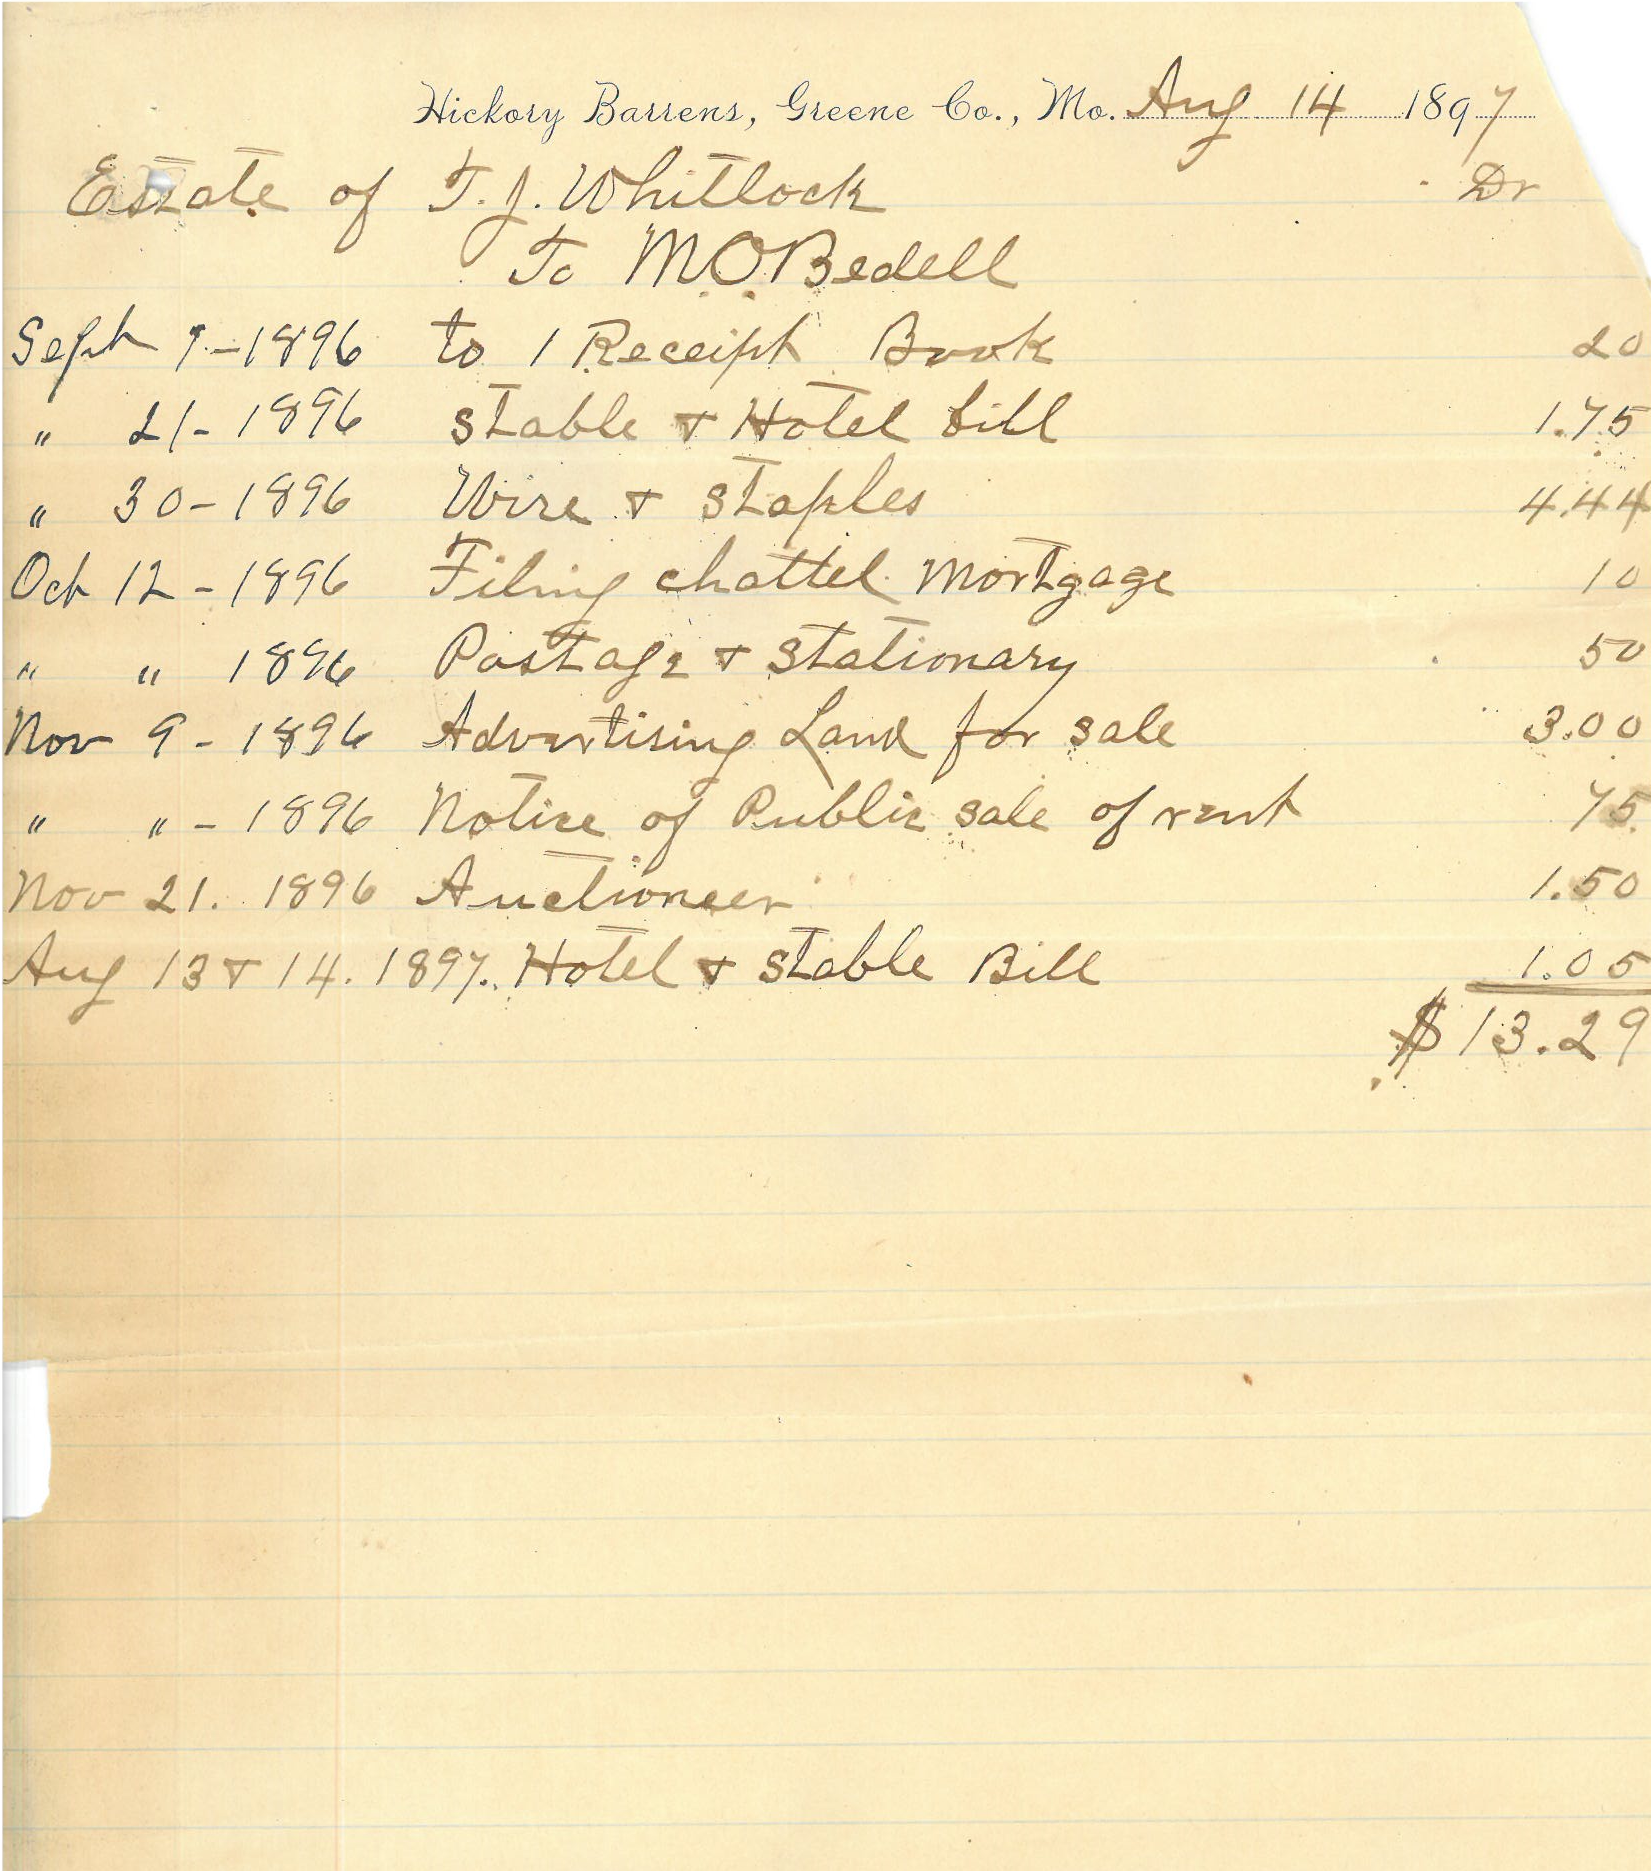 Hickory Barrens, Greene Co., Mo. Aug 14 1897
Estate of T. J. Whitlock Dr
To M.O. Bedell
Sept 7-1896 to 1 Receipt Book 20
" 21-1896 stable & Hotel bill 1.75
" 30-1896 Wire & staples 4.44
Oct 12-1896 Filing chattel Mortgage 10
" " 1896 Postage & stationary 50
Nov 9-1896 Advertising Land for sale 3.00
" " - 1896 Notice of Public sale of rent 75
Nov 21. 1896 Auctioneer 1.50
Aug 13 & 14. 1897. Hotel & stable Bill 1.05
$13.29